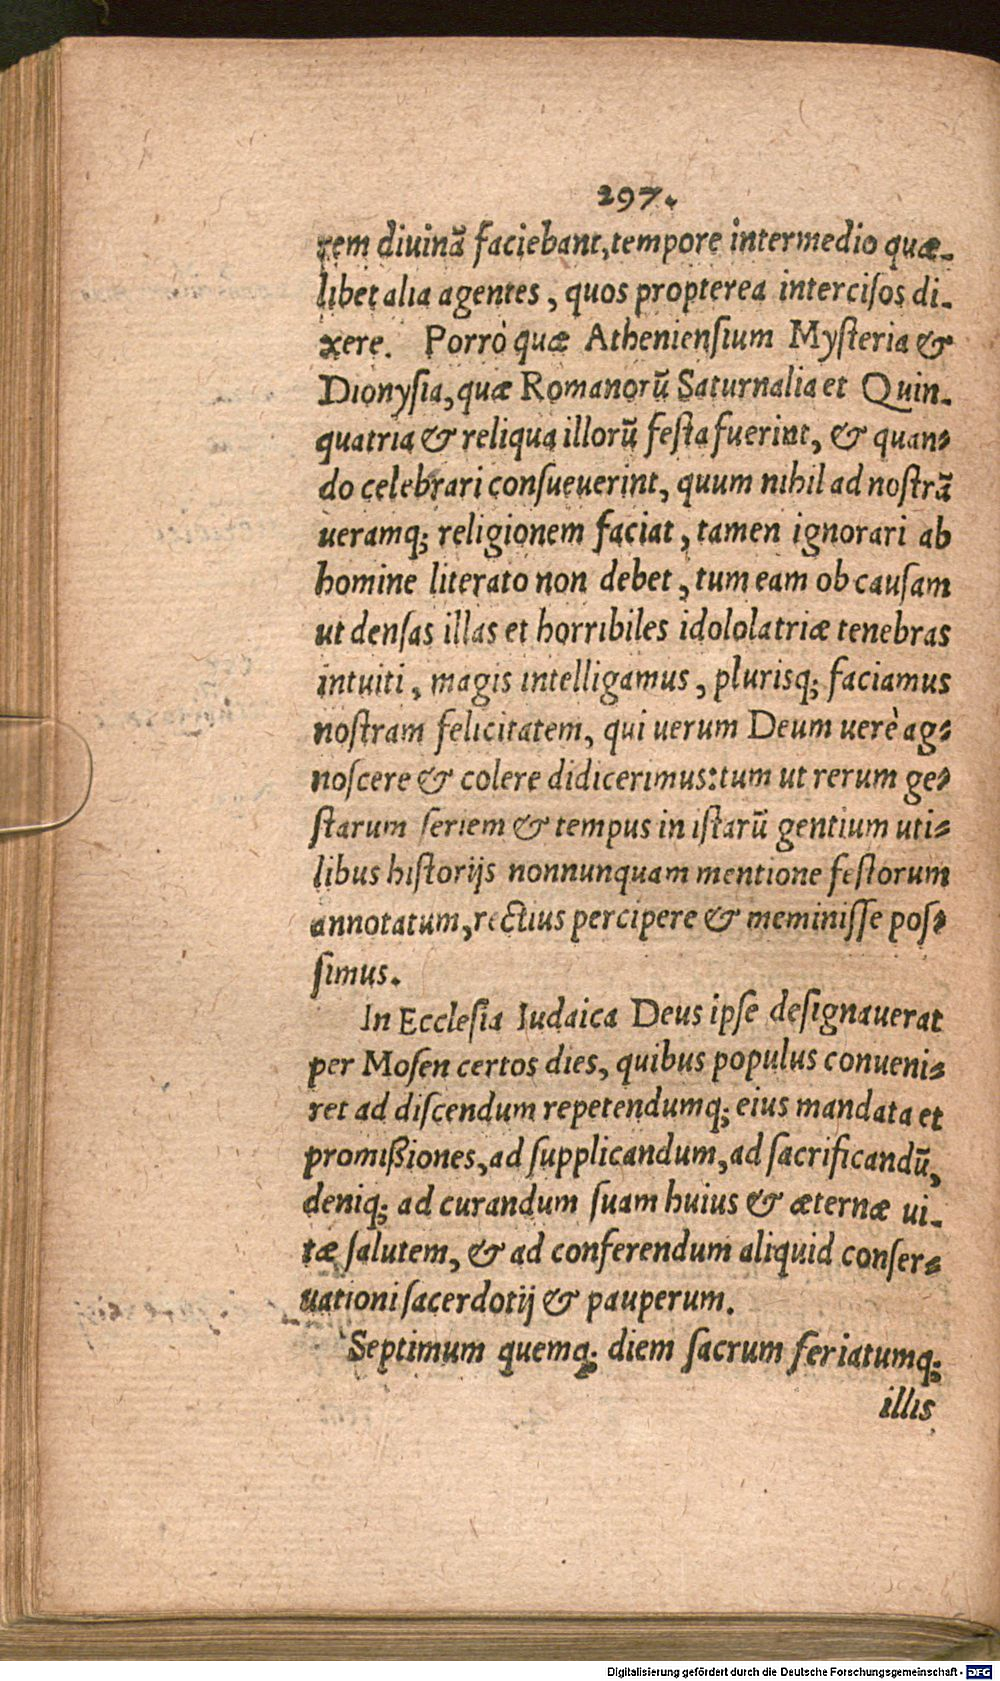 297.
rem diuinã faciebant, tempore intermedio quæ-
libet alia agentes, quos propterea intercisos di-
xere. Porrò quæ Atheniensium Mysteria &
Dionysia, quæ Romanorũ Saturnalia et Quin-
quatria & reliqua illorũ festa fuerint, & quan-
do celebrari consueuerint, quum nihil ad nostrã
ueramq; religionem faciat, tamen ignorari ab
homine literato non debet, tum eam ob causam
ut densas illas et horribiles idololatriæ tenebras
intuiti, magis intelligamus, plurisq; faciamus
nostram felicitatem, qui uerum Deum uerè ag-
noscere & colere didicerimus: tum ut rerum ge-
starum seriem & tempus in istarũ gentium uti-
libus historijs nonnunquam mentione festorum
annotatum, rectius percipere & meminisse pos-
simus.
In Ecclesia Iudaica Deus ipse designauerat
per Mosen certos dies, quibus populus conueni-
ret ad discendum repetendumq; eius mandata et
promißiones, ad supplicandum, ad sacrificandũ,
deniq; ad curandum suam huius & æternæ ui-
tæ salutem, & ad conferendum aliquid conser-
uationi sacerdotij & pauperum.
Septimum quemq; diem sacrum feriatumq;
illis
Digitalisierung gefördert durch die Deutsche Forschungsgemeinschaft - DFG